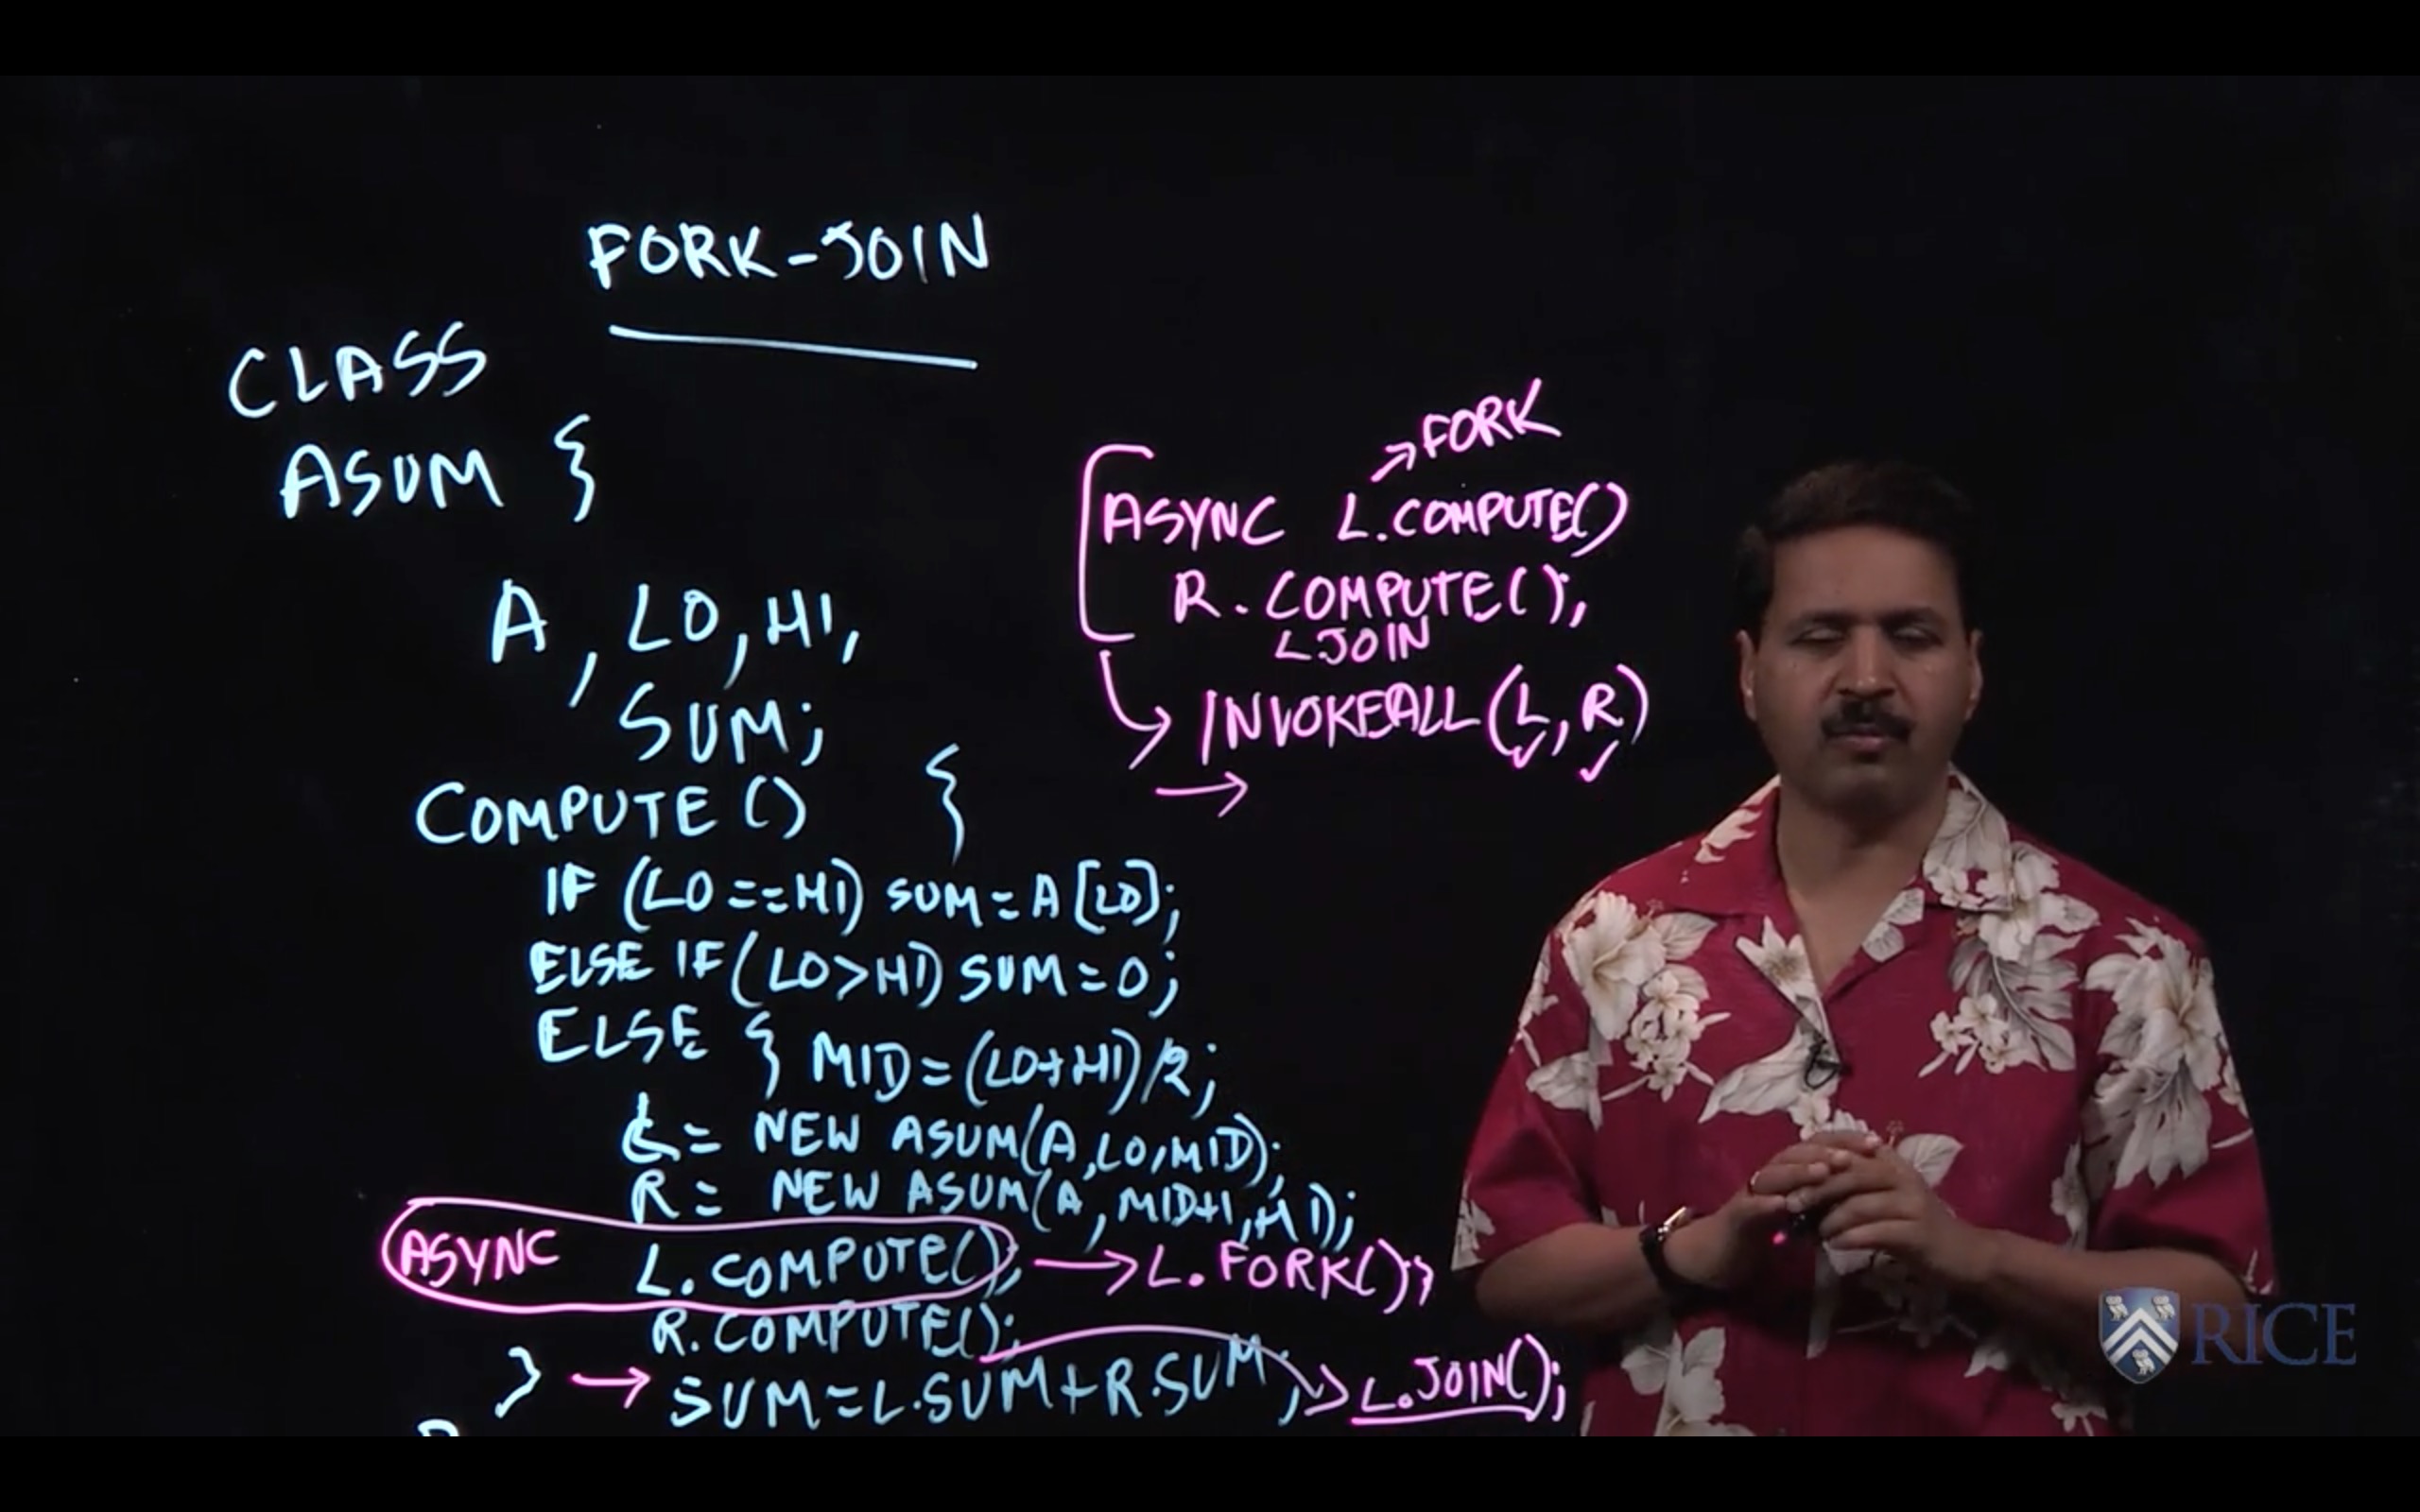 FORK-JOIN
CLASS
ASUM {
A, LO, HI,
SUM;
COMPUTE() {
IF (LO==HI) SUM=A[LO];
ELSE IF (LO>HI) SUM=0;
ELSE { MID=(LO+HI)/2;
L= NEW ASUM(A,LO,MID);
R= NEW ASUM(A,MID+1,HI);
ASYNC L.COMPUTE(); → L.FORK();
R.COMPUTE();
} → SUM=L.SUM+R.SUM; → L.JOIN();
→FORK
ASYNC L.COMPUTE()
R.COMPUTE();
L.JOIN
→ INVOKEALL(L,R)
→
RICE